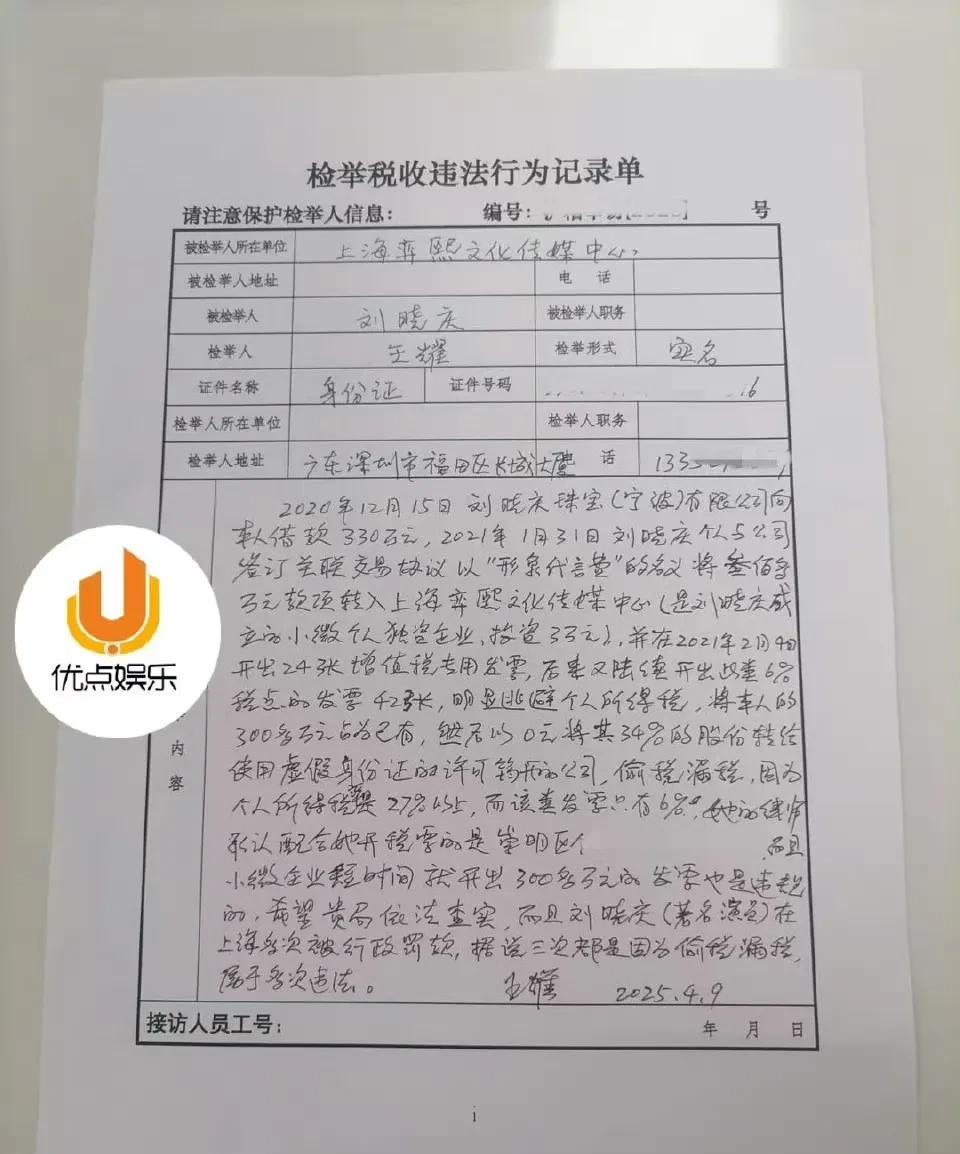 检举税收违法行为记录单
请注意保护检举人信息: 编号: 号
被检举人所在单位 上海弈熙文化传媒中心
被检举人地址 电 话
被检举人 刘晓庆 被检举人职务
检举人 王耀 检举形式 实名
证件名称 身份证 证件号码 16
检举人所在单位 检举人职务
检举人地址 广东深圳市福田区长城大厦 话 133
2020年12月15日刘晓庆珠宝(宁波)有限公司向
本人借款330万元,2021年1月31日刘晓庆个人与公司
签订关联交易协议以“形象代言费”的名义将叁佰多
万元款项转入上海弈熙文化传媒中心(是刘晓庆成
立的小微个人独资企业,投资3万元),并在2021年2月4日
开出24张增值税专用发票,后来又陆续开出此类6%
税点的发票42张,明显逃避个人所得税,将本人的
300多万元占为己有,然后以0元将其34%的股份转给
使用虚假身份证的许可 的公司,偷税漏税,因为
个人所得税 27%以上,而该类发票只有6%,她的律师
承认配合她开税票的是崇明区个 而且
小微企业短时间就开出300多万元的发票也是违规
的,希望贵局依法查实,而且刘晓庆(著名演员)在
上海多次被行政罚款,据说三次都是因为偷税漏税,
属于多次违法。 王耀 2025.4.9
内
容
接访人员工号: 年 月 日
1
优点娱乐